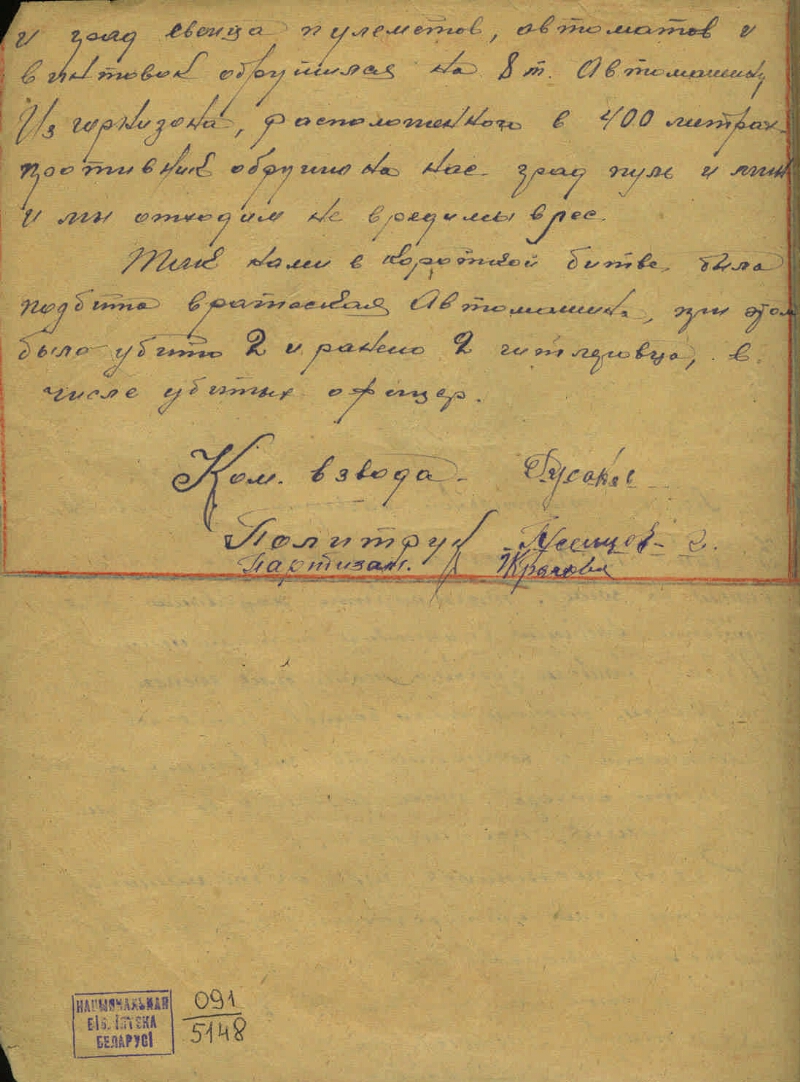 и град свинца пулеметов, автоматов и
винтовок обрушился на 8 т. Автомашину
Из гарнизона, расположенного в 400 метрах
противник обрушил на нас град пуль и мин
и мы отходим не вредимы
нами в короткой битве была
подбита вражеская Автомашина, при этом
было убито 2 и ранено 2 гитлеровца, в
числе убитых офицер.
Ком. взвода. Гусаков
Политрук
Партизан.
НАЦЫЯНАЛЬНАЯ
БІБЛІЯТЭКА
БЕЛАРУСІ
091
5148